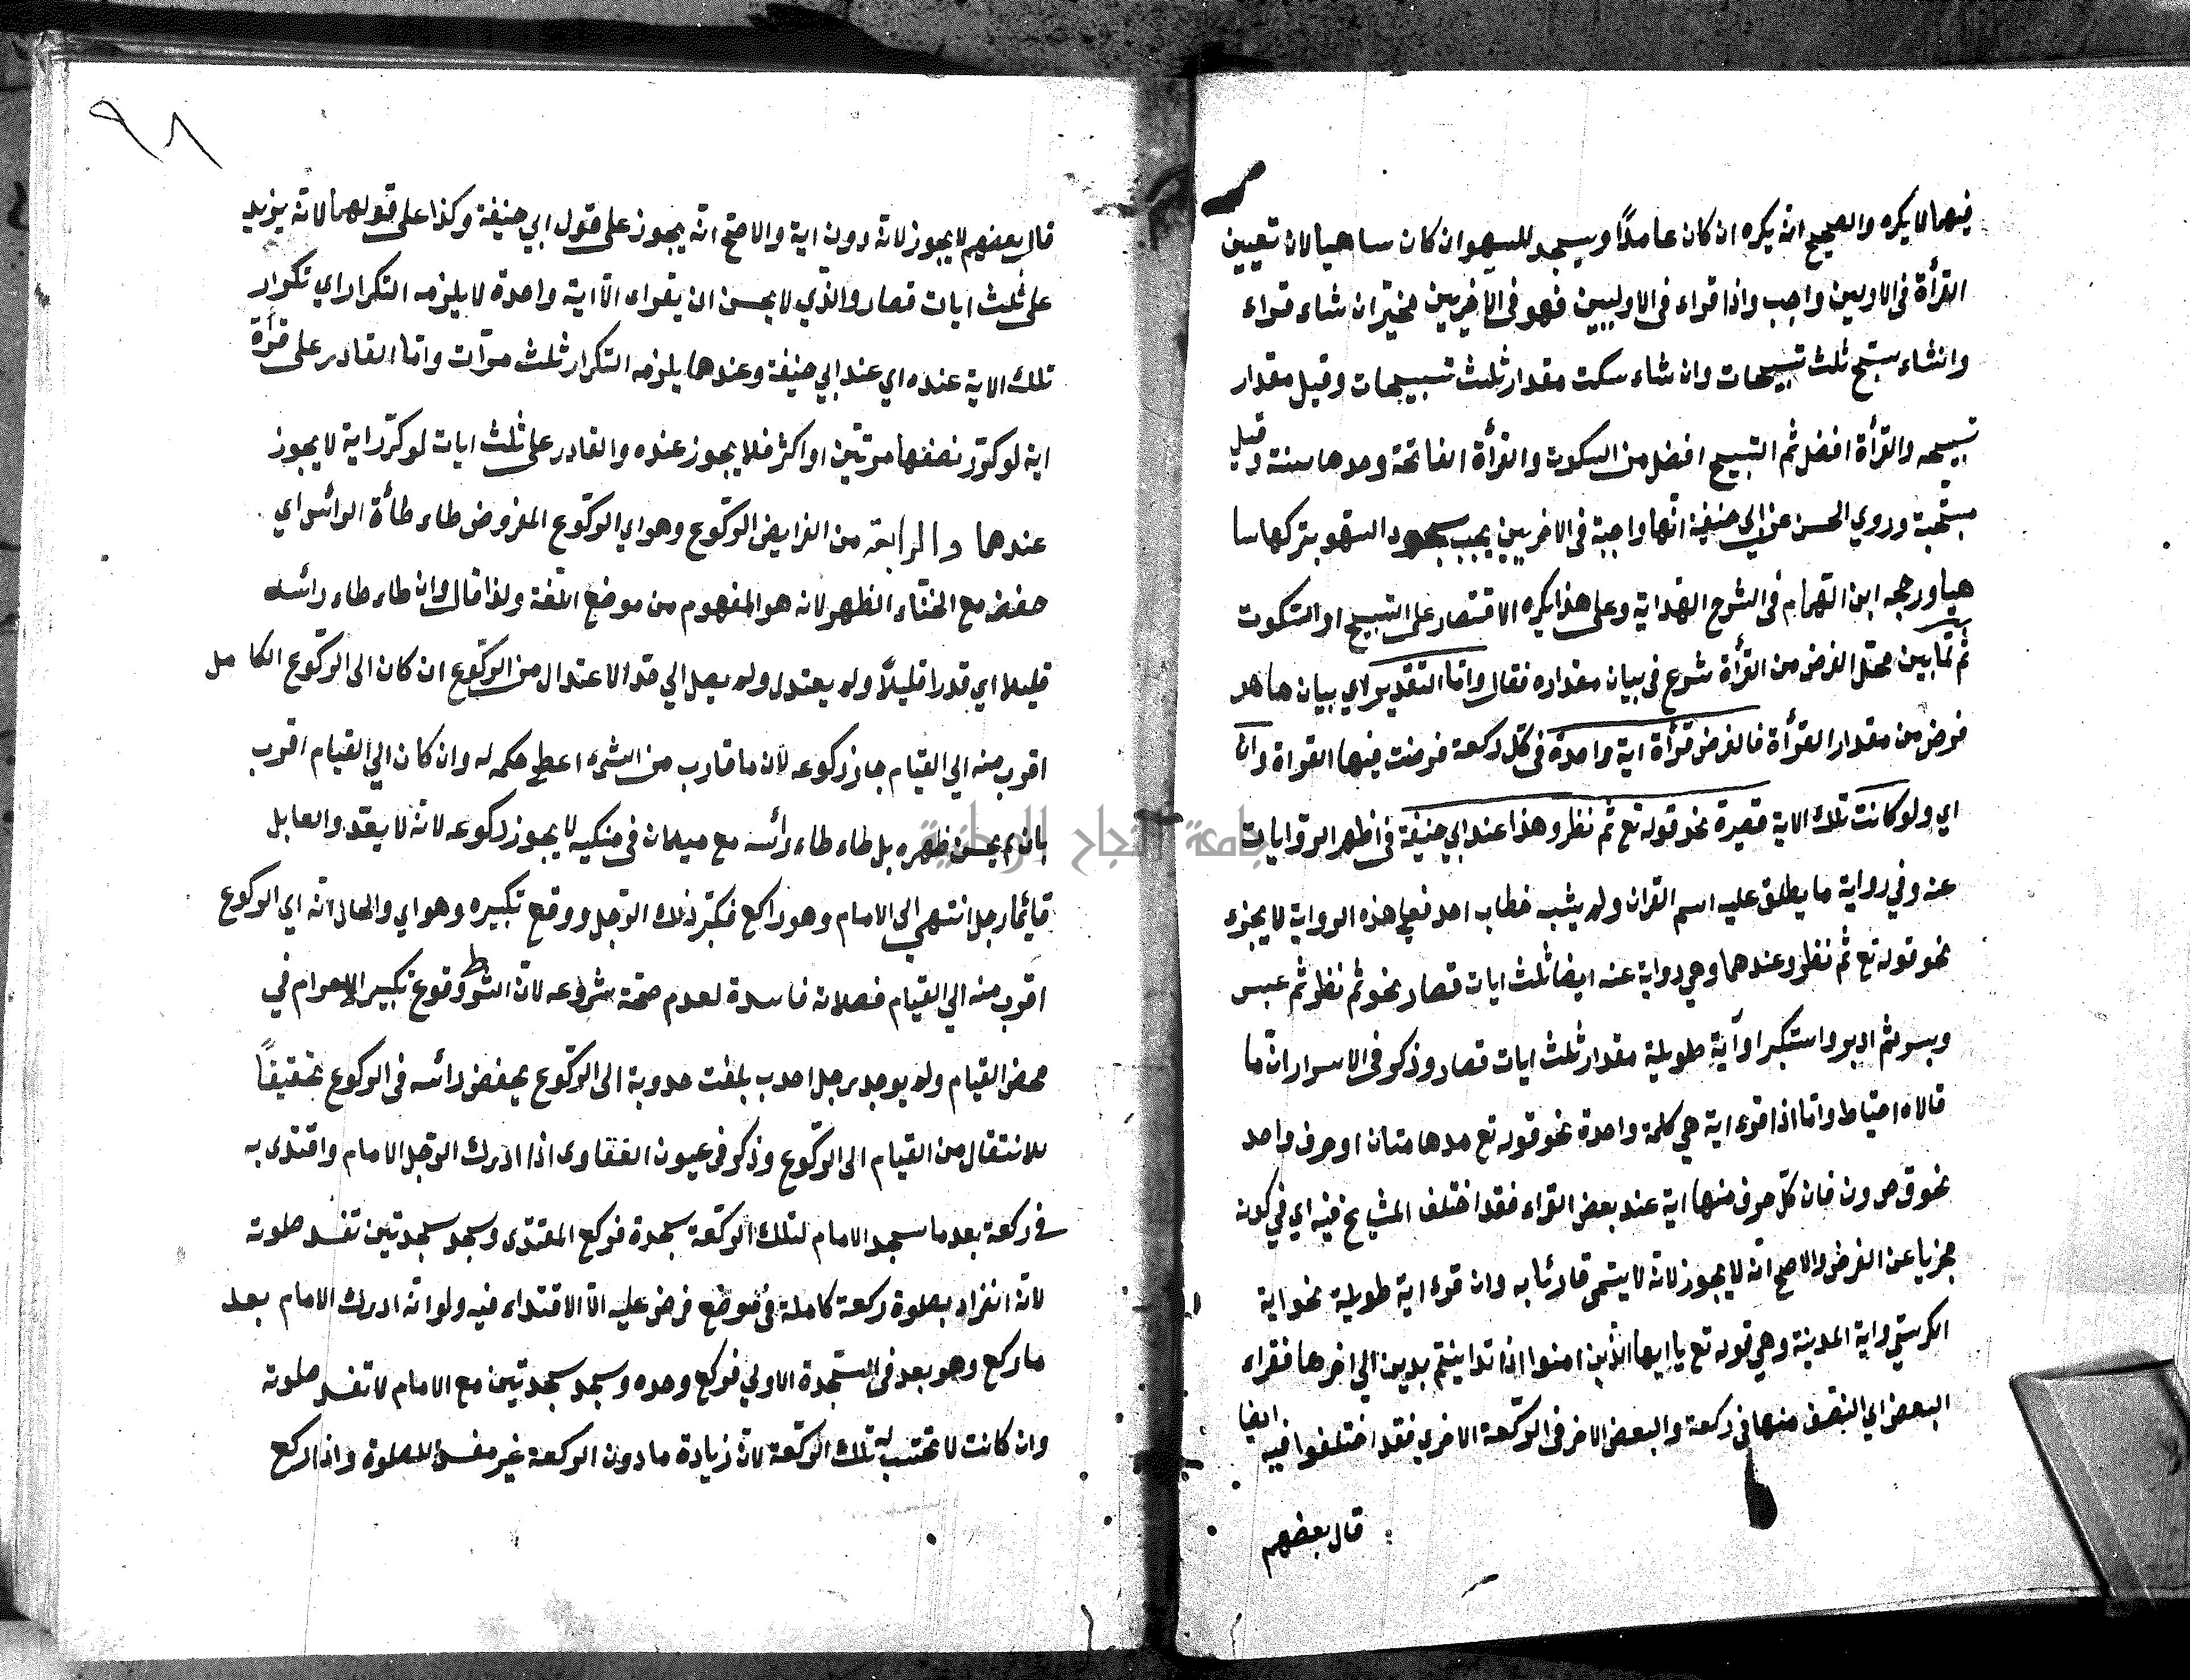 فيهما لا يكره والصحيح انه يكره ان كان عامدًا ويسجد للسهو ان كان ساهيا لان تعيين
القرأة فى الاوليين واجب واذا قواء فى الاوليين فهو فى الآخريين مخيّر ان شاء قواء
وانشاء سبّح ثلث تسبيحات وان شاء سكت مقدار ثلث تسبيحات وقيل مقدار
تسبيحه والقرأة افضل ثم التسبيح افضل من السكوت والقرأة الفاتحة وحدها سنة وقيل
مستحّبة وروي الحسن عن ابي حنيفة انّها واجبة فى الاخريين يجب سجود السّهو بتركها سا
هيا ورجحه ابن الهّمام فى الشرح الهداية وعلى هذا يكره الاقتصار على التسبيح او السّكوت
ثم لمّا بين محّل الفرض من القرأة شرع فى بيان مقداره فقال وامّا التقدير اي بيان ما هو
فرض من مقدار القرأة فالفرض قرأة اية واحدة فى كلّ ركعة فرضت فيها القراة وان
اي ولو كانت تلك الاية قصيرة نحو قوله تع ثم نظر وهذا عند ابي حنيفة فى اظهر الروايات
عنه وفي رواية ما يطلق عليه اسم القران ولم يشبه خطاب احد فعلى هذه الرواية لا يجزء
نحو قوله تع ثم نظر وعندهما وهي رواية عنه ايضا ثلث ايات قصار نحو ثم نظر ثم عبس
وبسر ثم ادبر واستكبر او آية طويلة مقدار ثلث ايات قصار وذكر فى الاسرار انّ ما
قالاه احتياط وامّا اذا قوء اية هي كلمة واحدة نحو قوله تع مدهامتان او حرف واحد
نحو ق ص ون فان كلّ حرف منها اية عند بعض القراء فقد اختلف المشايخ فيه اي في كونه
مجزيا عن الفرض والاصح انّه لا يجوز لانه لا يسّمى قارئا به وان قوء اية طويلة نحو اية
الكرستي واية المدينة وهي قوله تع يا ايها الّذين امنوا اذا تداينتم بدين الي اخرها فقراء
البعض اي النّصف منها فى ركعة والبعض الاخر فى الرّكعة الاخري فقد اختلفوا فيه ايضا
قال بعضهم
٩٨
قال بعضهم لا يجوز لانّه دون اية والاصّح انّه يجوز على قول ابي حنيفة وكذا على قولهما لانه يزيد
على ثلث ايات قصار والّذي لا يحسن ان يقواء الاّ اية واحدة لا يلزمه التكرار اي تكرار
تلك الاية عنده اي عند ابي حنيفة وعندهما يلزمه التكرار ثلث مرّات وامّا القادر على قرأة
اية لو كرّر نصفها مرّتين او اكثر فلا يجوز عنده والقادر على ثلث ايات لو كرّر اية لا يجوز
عندهما والرابعة من الفرايض الركوع وهو اي الركوع المفروض طاء طأة الرائس اي
خفض مع انحناء الظهر لانه هو المفهوم من موضع اللّغة ولذا قال وان طاء طاء رائسه
قليلا اي قدرا قليلاً ولم يعتدل ولم يصل الي حّد الاعتدال من الركوع ان كان الى الركوع الكامل
اقرب منه الي القيام جاز ركوعه لان ما قارب من الشيء اعطي حكمه له وان كان الي القيام اقرب
بان لم يحسن ظهره بل طاء طاء رائسه مع ميلان فى منكبيه لا يجوز ركوعه لانه لا يعّد والعا بل
قائما رجل انتهي الي الامام وهو راكع فكبّر ذلك الرّجل ووقع تكبيره وهو اي والحال انّه اي الركوع
اقرب منه الي القيام فصلاته فاسدة لعدم صحّة شروعه لانّ الشرط وقوع تكبير الاحرام في
محض القيام ولم يوجد رجل احدب بلغت حدوبة الى الرّكوع يخفض رائسه فى الركوع تحقيقًا
للانتقال من القيام الى الرّكوع وذكر فى عيون الفتاوى اذا ادرك الرّجل الامام واقتدى به
في ركعة بعد ما سجد الامام لتلك الرّكعة سجدة فركع المقتدى وسجد سجدتين تفسد صلوته
لانّه انفراد بصلوة ركعة كاملة فى موضع فرض عليه الاّ الاقتداء فيه ولو انّه ادرك الامام بعد
ما ركع وهو بعد فى السّجدة الاولي فركع وحده وسجد سجدتين مع الامام لا تفسد صلوته
وان كانت لا تحتسب له تلك الرّكعة لانّ زيادة ما دون الركعة غير مفسد للصلوة واذا ركع
جامعة النجاح الوطنية